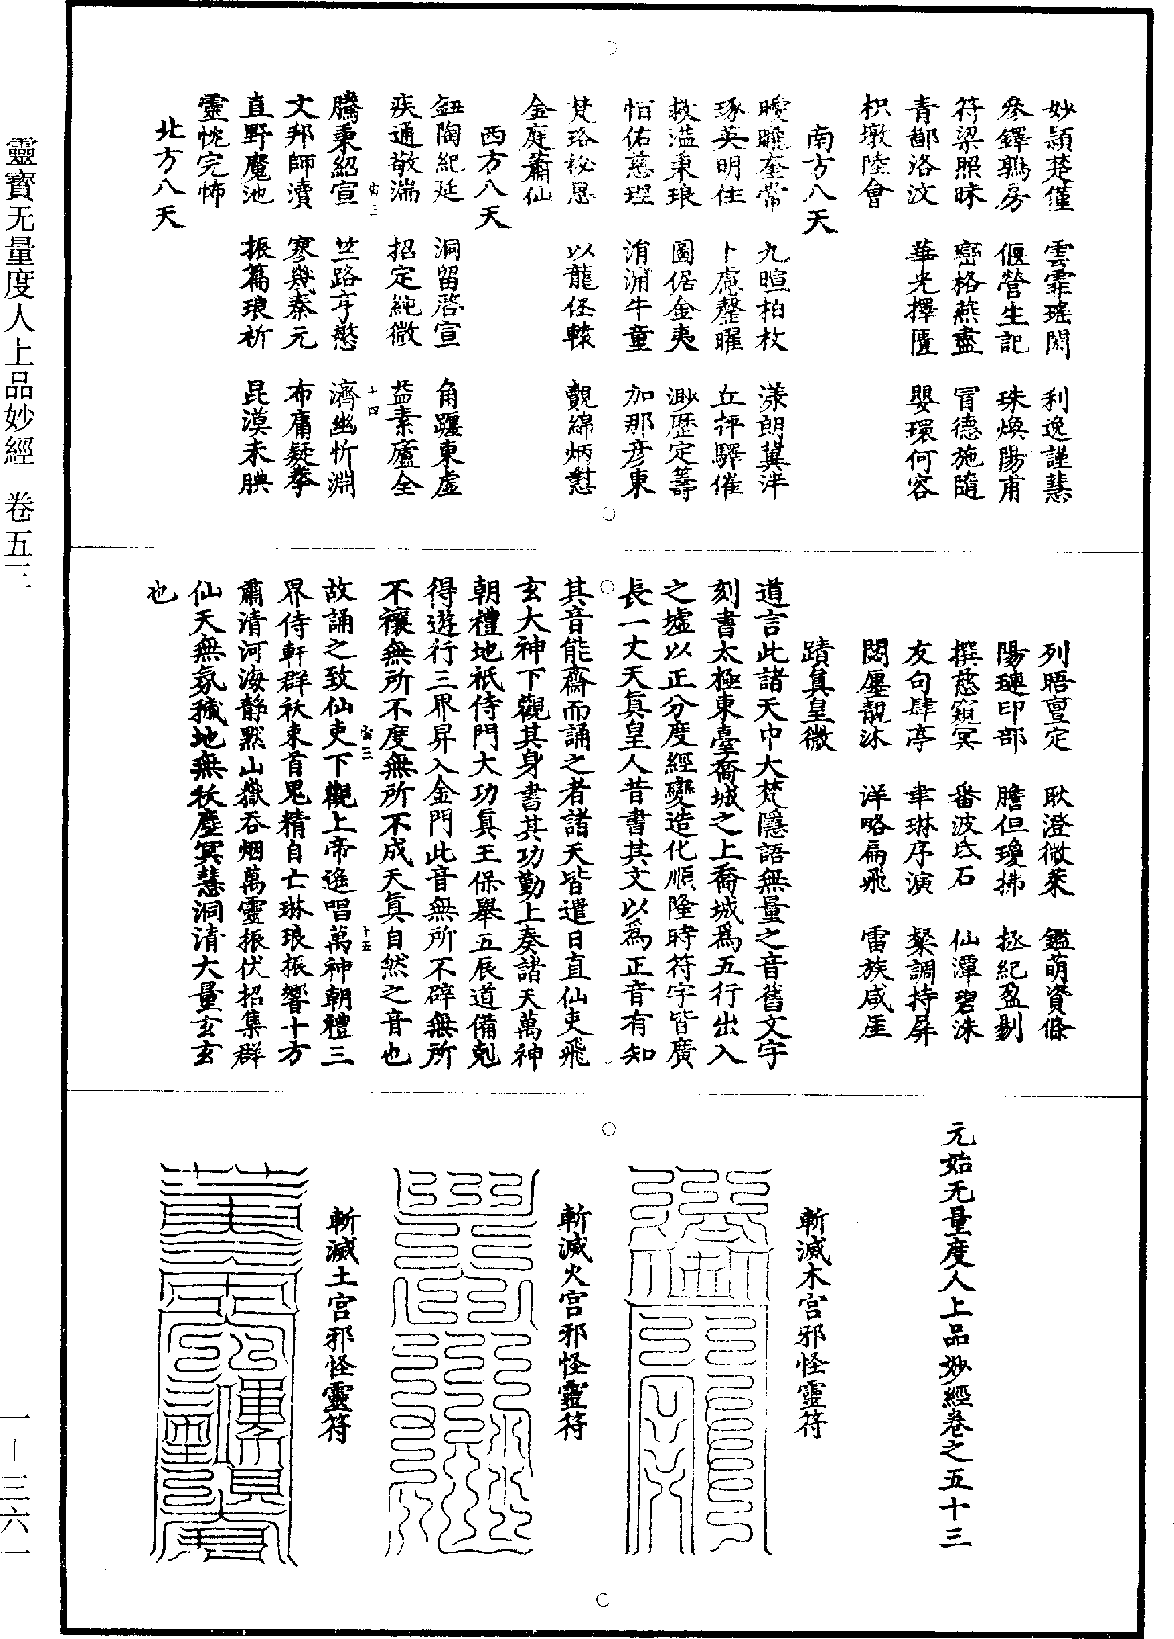 妙穎楚僅　雲霏瑤閑　利逸謹慧
參鐸鶉房　偃營生記　珠煥陽甫
符梁照昧　巒格燕盡　育德施隨
青鄙洛汶　華光擇匱　嬰環何容
枳墩陸會
南方八天
曖曨奎常　九暄柏枚　漾朗冀泮
琢英明住　卜庵磬曜　丘評驛催
救溢秉琅　圖倨金夷　渺歷定籌
怕佑慈理　洧浦牛童　加那彥東
梵珞祕恩　以龍伾轅　覬綿炳懟
金庭蕭仙
西方八天
鈕陶紀延　洞留啓宣　角躔東虛
疾通敬湍　招定純微　益素廬全
騰秉紹宣　竺路亨慜　濟幽忻淵
文邦師瀆　寥幾秦元　布庸疑拳
直野魔池　振篇琅祈　昆漠未腆
靈悗完怖
北方八天
列晤亶定　耿澄微萊　鑑萌資條
陽璉印部　膽但瓊拂　拯紀盈剔
撰慈窺冥　番波底石　仙潭碧洙
友句肆亭　聿琳序演　粲調持屏
闊廛靚沐　洋略扁飛　雷族咸厓
蹟真皇微
道言此諸天中大梵隱語無量之音舊文字
刻書太極東臺喬城之上喬城為五行出入
之墟以正分度經變造化順隆時符字皆廣
長一丈天真皇人昔書其文以為正音有知
其音能齋而誦之者諸天皆遣日直仙吏飛
玄大神下觀其身書其功勤上奏諸天萬神
朝禮地祇侍門大功真王保舉五辰道備剋
得遊行三界昇入金門此音無所不辟無所
不禳無所不度無所不成天真自然之音也
故誦之致仙吏下觀上帝遙唱萬神朝禮三
界侍軒群袄束首鬼精自亡琳琅振響十方
肅清河海靜默山嶽吞烟萬靈振伏招集群
仙天無氛穢地無袄塵冥慧洞清大量玄玄
也
元始无量度人上品妙經卷之五十三
斬滅木宮邪怪靈符
斬滅火宮邪怪靈符
斬滅土宮邪怪靈符
靈寶无量度人上品妙經　卷五三
一—三六一